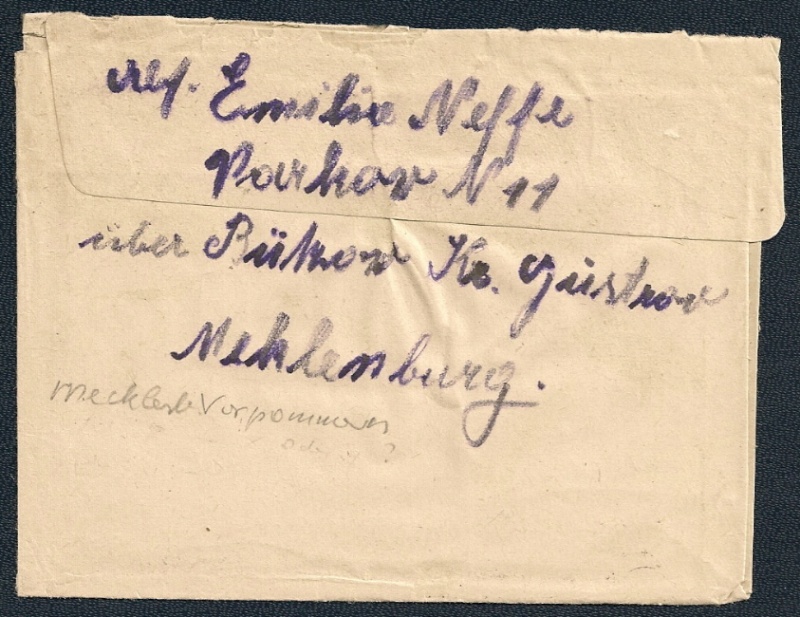 Emilie Neffe
Parkow N 11
über Bükow Kr. Güstrow
Meklenburg.
Mecklenb Vorpommern
?